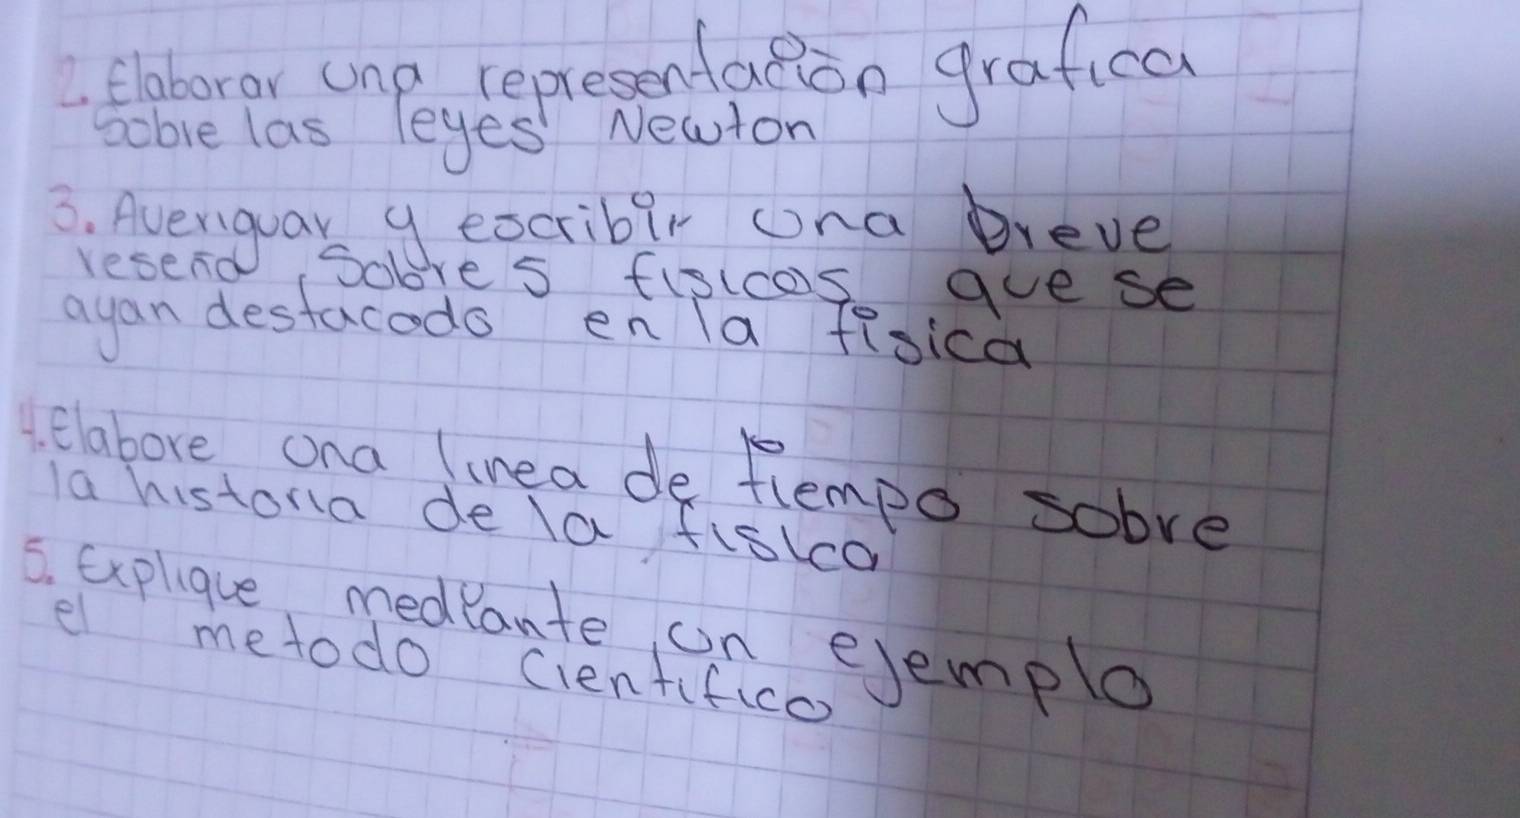 2. Elaborar una representación grafica
sobre las leyes Newton
3. Averiguar y escribir una breve
reseña sobre 5 fisicos que se
ayan destacado en la fisica
4. Elabore una linea de tiempo sobre
la historia de la fisica
5. Explique mediante un ejemplo
el metodo cientifico